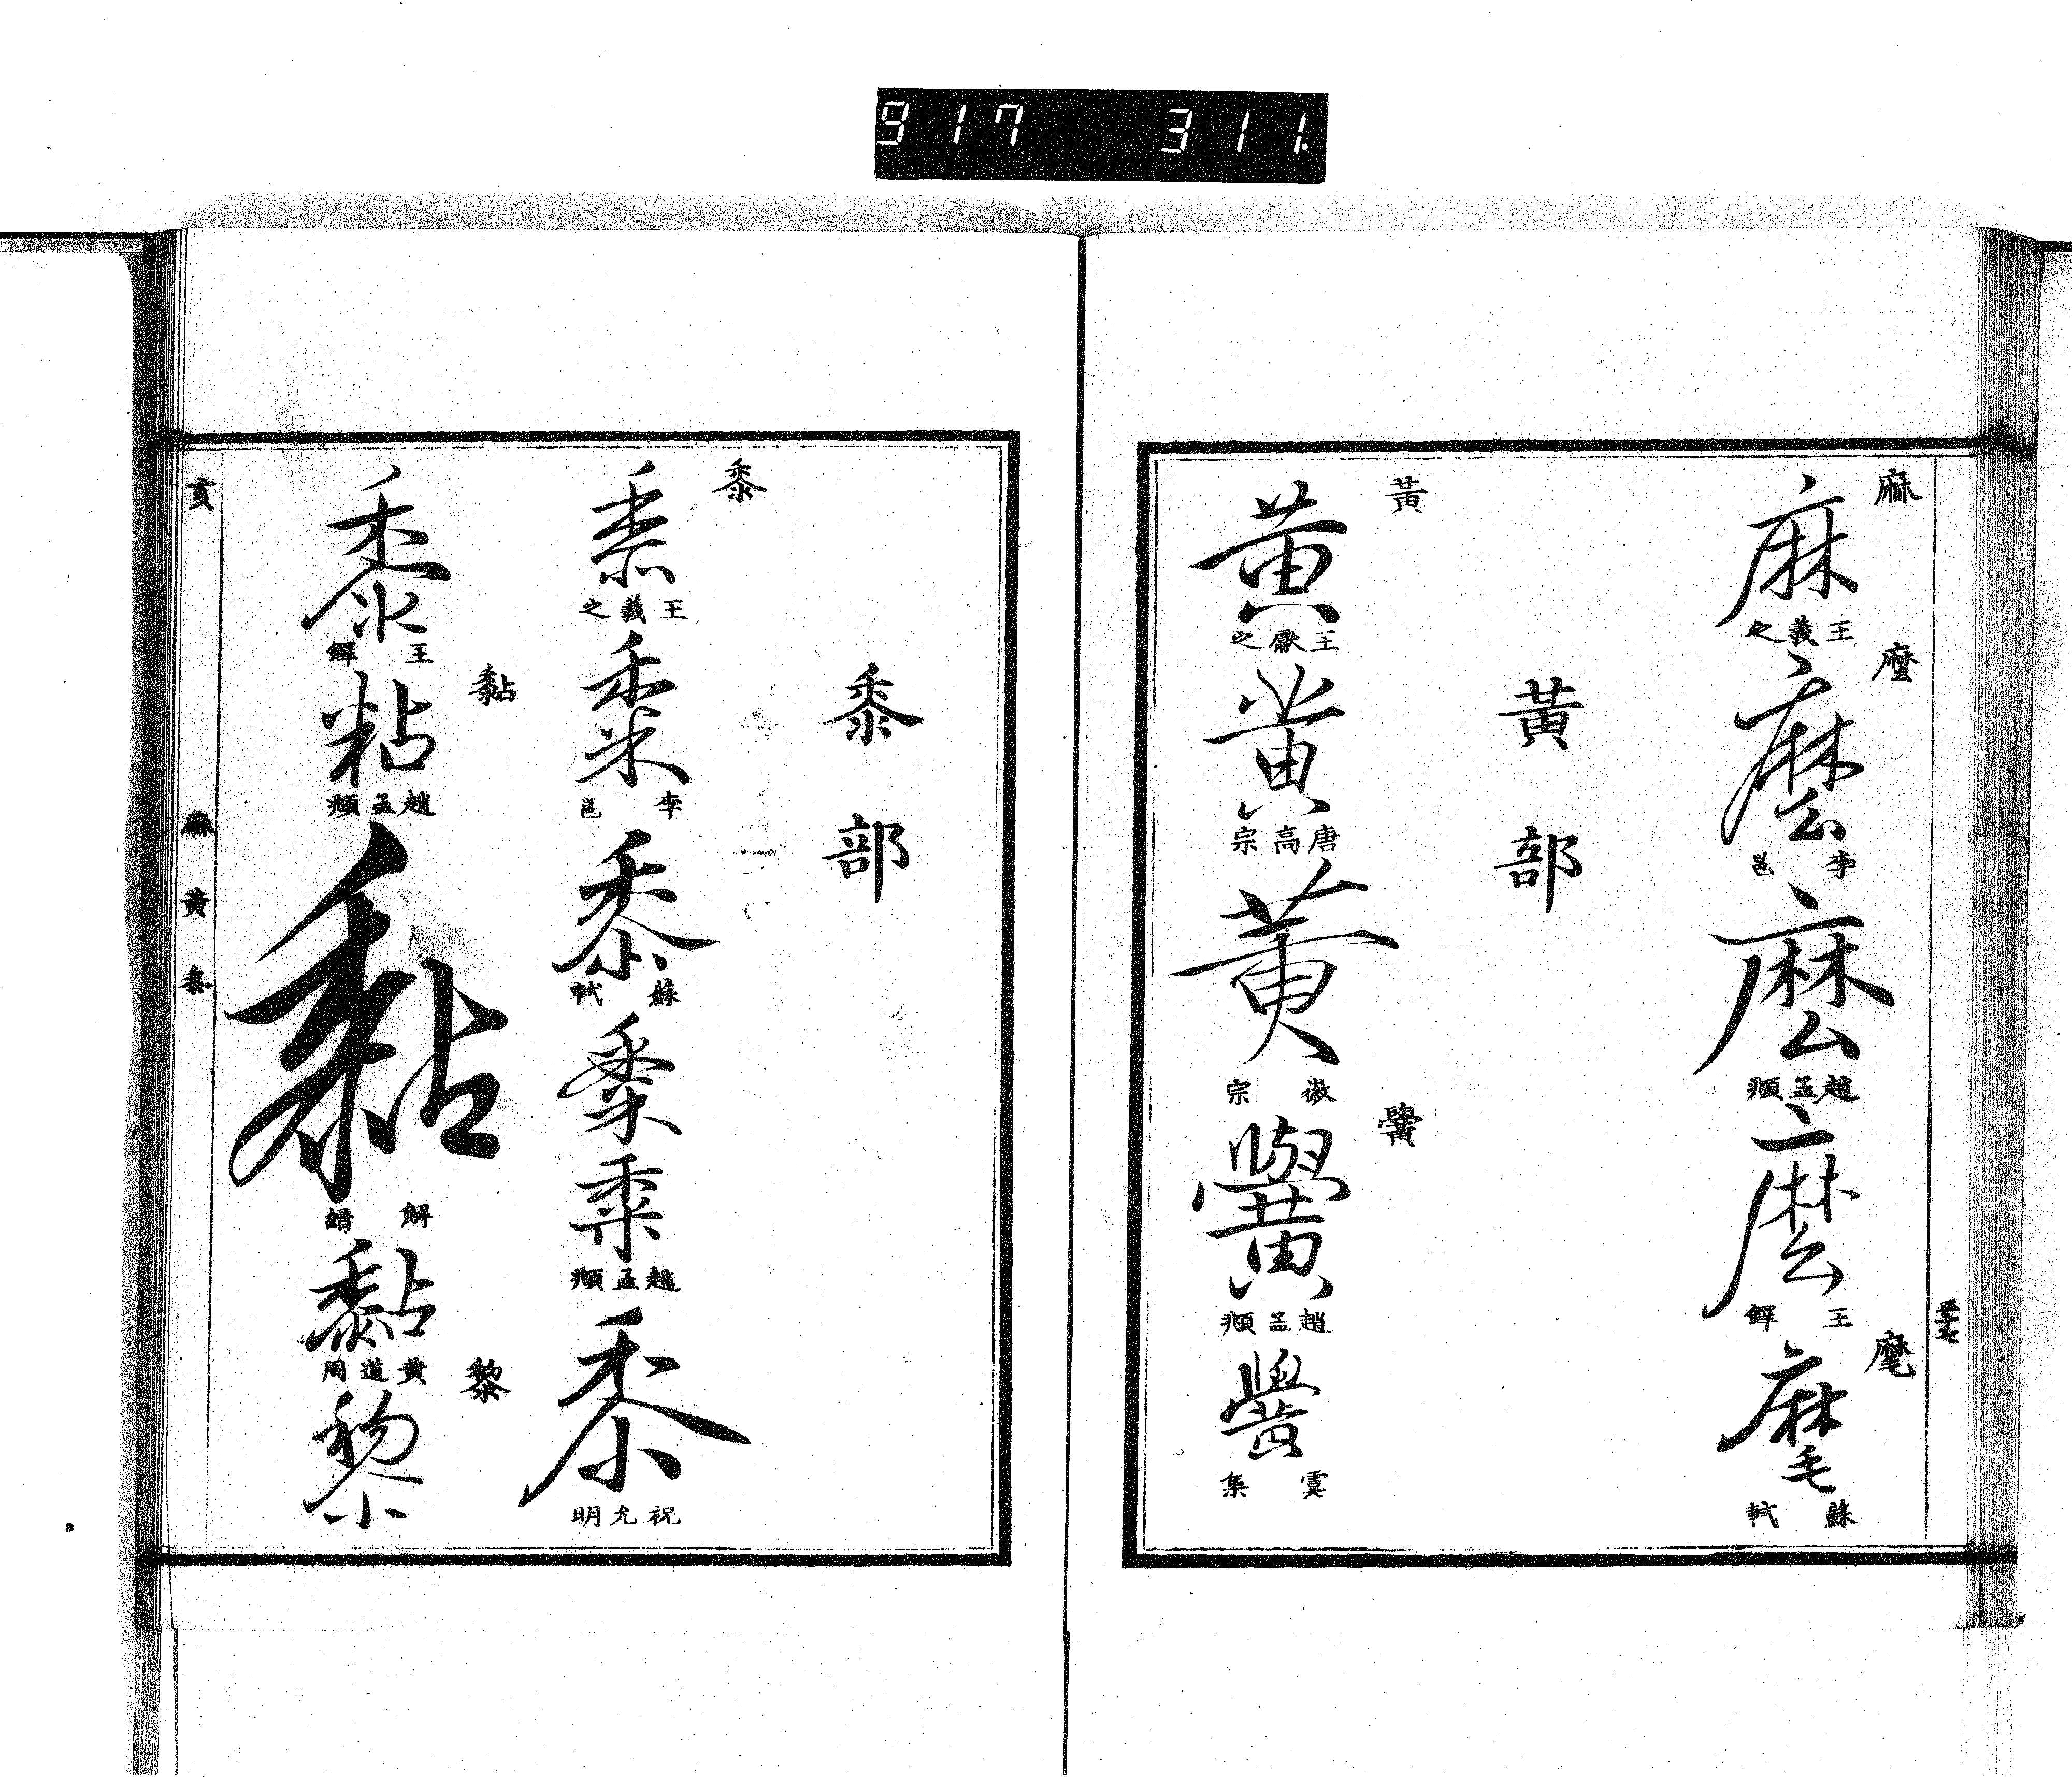 917 311
麻
麻
王羲之
麼
麼
李邕
麼
趙孟頫
麼
王鐸
麾
麾
蘇軾
黃部
黃
黃
王獻之
黃
唐高宗
黃
徽宗
黌
黌
趙孟頫
黌
虞集
黍部
黍
黍
王羲之
黍
李邕
黍
蘇軾
黍
黍
趙孟頫
黍
祝允明
黍
王鐸
黏
粘
趙孟頫
黏
解縉
黏
黃道周
黎
黎
亥
麻 黃 黍